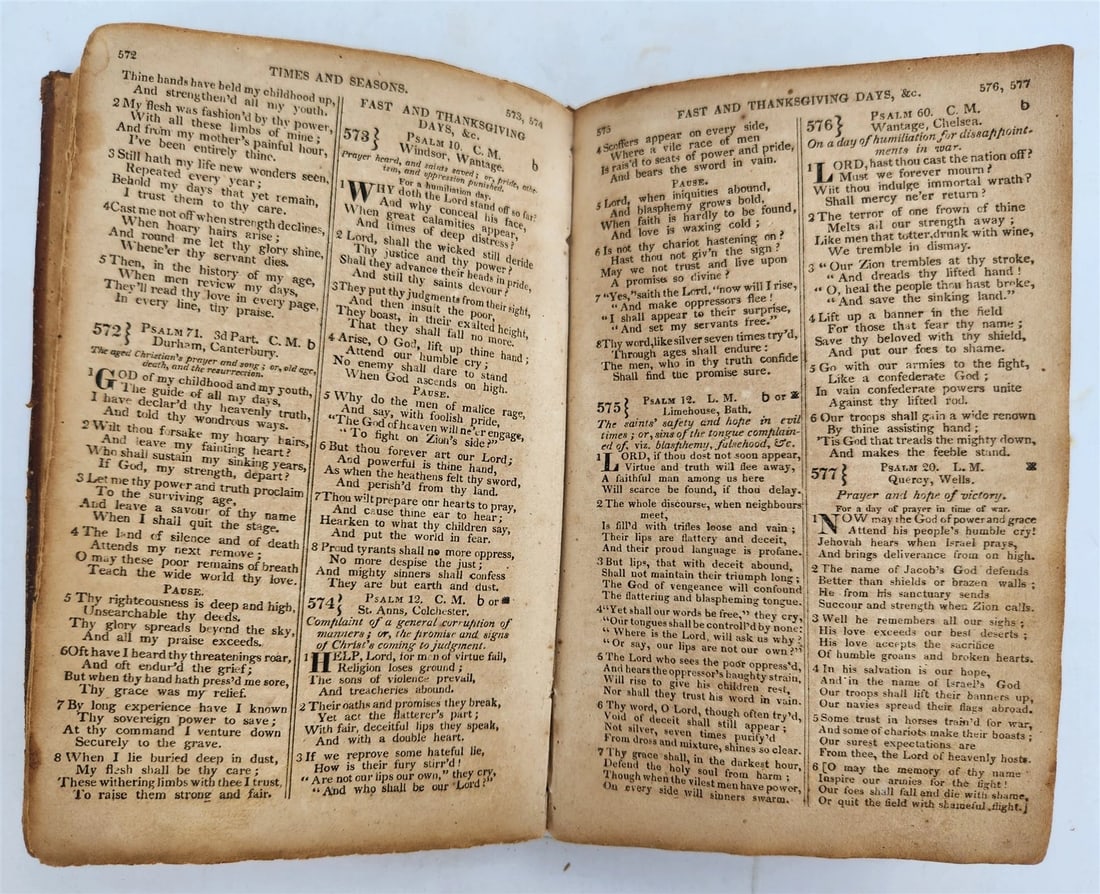 572
TIMES AND SEASONS.
573, 574
Thine hands have held my childhood up,
And strengthen'd all my youth.
2 My flesh was fashion'd by thy power,
With all these limbs of mine;
And from my mother's painful hour,
I've been entirely thine.
3 Still hath my life new wonders seen,
Repeated every year;
Behold my days that yet remain,
I trust them to thy care.
4 Cast me not off when strength declines,
When hoary hairs arise;
And round me let thy glory shine,
Whene'er thy servant dies.
5 Then, in the history of my age,
When men review my days,
They'll read thy love in every page,
In every line, thy praise.
572} PSALM 71. 3d Part. C. M. b
Durham, Canterbury.
The aged Christian's prayer and song; or, old age,
death, and the resurrection.
1 GOD of my childhood and my youth,
The guide of all my days,
I have declar'd thy heavenly truth,
And told thy wondrous ways.
2 Wilt thou forsake my hoary hairs,
And leave my fainting heart?
Who shall sustain my sinking years,
If God, my strength, depart?
3 Let me thy power and truth proclaim
To the surviving age,
And leave a savour of thy name
When I shall quit the stage.
4 The land of silence and of death
Attends my next remove;
O may these poor remains of breath
Teach the wide world thy love.
PAUSE.
5 Thy righteousness is deep and high,
Unsearchable thy deeds.
Thy glory spreads beyond the sky,
And all my praise exceeds.
6 Oft have I heard thy threatenings roar,
And oft endur'd the grief;
But when thy hand hath press'd me sore,
Thy grace was my relief.
7 By long experience have I known
Thy sovereign power to save;
At thy command I venture down
Securely to the grave.
8 When I lie buried deep in dust,
My flesh shall be thy care;
These withering limbs with thee I trust,
To raise them strong and fair.
FAST AND THANKSGIVING
DAYS, &c.
573} PSALM 10. C. M.
Windsor, Wantage. b
Prayer heard, and saints saved; or, pride, athe-
ism, and oppression punished.
For a humiliation day.
1 WHY doth the Lord stand off so far?
And why conceal his face,
When great calamities appear,
And times of deep distress?
2 Lord, shall the wicked still deride
Thy justice and thy power?
Shall they advance their heads in pride,
And still thy saints devour?
3 They put thy judgments from their sight,
And then insult the poor,
They boast, in their exalted height,
That they shall fall no more.
4 Arise, O God, lift up thine hand;
Attend our humble cry;
No enemy shall dare to stand
When God ascends on high.
PAUSE.
5 Why do the men of malice rage,
And say, with foolish pride,
"The God of heaven will ne'er engage,
"To fight on Zion's side?"
6 But thou forever art our Lord;
And powerful is thine hand,
As when the heathens felt thy sword,
And perish'd from thy land.
7 Thou wilt prepare our hearts to pray,
And cause thine ear to hear;
Hearken to what thy children say,
And put the world in fear.
8 Proud tyrants shall no more oppress,
No more despise the just;
And mighty sinners shall confess
They are but earth and dust.
574} PSALM 12. C. M. b or
St. Anns, Colchester.
Complaint of a general corruption of
manners; or, the promise and signs
of Christ's coming to judgment.
1 HELP, Lord, for men of virtue fail,
Religion loses ground;
The sons of violence prevail,
And treacheries abound.
2 Their oaths and promises they break,
Yet act the flatterer's part;
With fair, deceitful lips they speak,
And with a double heart.
3 If we reprove some hateful lie,
How is their fury stirr'd!
"Are not our lips our own," they cry,
"And who shall be our Lord?"
575
FAST AND THANKSGIVING DAYS, &c.
576, 577
4 Scoffers appear on every side,
Where a vile race of men
Is rais'd to seats of power and pride,
And bears the sword in vain.
PAUSE.
5 Lord, when iniquities abound,
And blasphemy grows bold,
When faith is hardly to be found,
And love is waxing cold;
6 Is not thy chariot hastening on?
Hast thou not giv'n the sign?
May we not trust and live upon
A promise so divine?
7 "Yes," saith the Lord, "now will I rise,
"And make oppressors flee!
"I shall appear to their surprise,
"And set my servants free."
8 Thy word, like silver seven times try'd,
Through ages shall endure:
The men, who in thy truth confide
Shall find the promise sure.
575} PSALM 12. L. M. b or
Limehouse, Bath.
The saints' safety and hope in evil
times; or, sins of the tongue complain-
ed of, viz. blasphemy, falsehood, &c.
1 LORD, if thou dost not soon appear,
Virtue and truth will flee away,
A faithful man among us here
Will scarce be found, if thou delay.
2 The whole discourse, when neighbours
meet,
Is fill'd with trifles loose and vain;
Their lips are flattery and deceit,
And their proud language is profane.
3 But lips, that with deceit abound,
Shall not maintain their triumph long;
The God of vengeance will confound
The flattering and blaspheming tongue.
4 "Yet shall our words be free," they cry,
"Our tongues shall be controll'd by none:
"Where is the Lord, will ask us why?
"Or say, our lips are not our own?"
5 The Lord who sees the poor oppress'd,
And hears the oppressor's haughty strain,
Will rise to give his children rest,
Nor shall they trust his word in vain.
6 Thy word, O Lord, though often try'd,
Void of deceit shall still appear;
Not silver, seven times purify'd
From dross and mixture, shines so clear.
7 Thy grace shall, in the darkest hour,
Defend the holy soul from harm;
Though when the vilest men have power,
On every side will sinners swarm.
576} PSALM 60. C. M.
Wantage, Chelsea. b
On a day of humiliation for disappoint-
ments in war.
1 LORD, hast thou cast the nation off?
Must we forever mourn?
Wilt thou indulge immortal wrath?
Shall mercy ne'er return?
2 The terror of one frown of thine
Melts all our strength away;
Like men that totter, drunk with wine,
We tremble in dismay.
3 "Our Zion trembles at thy stroke,
"And dreads thy lifted hand!
"O, heal the people thou hast broke,
"And save the sinking land."
4 Lift up a banner in the field
For those that fear thy name;
Save thy beloved with thy shield,
And put our foes to shame.
5 Go with our armies to the fight,
Like a confederate God;
In vain confederate powers unite
Against thy lifted rod.
6 Our troops shall gain a wide renown
By thine assisting hand;
'Tis God that treads the mighty down,
And makes the feeble stand.
577} PSALM 20. L. M.
Quercy, Wells.
Prayer and hope of victory.
For a day of prayer in time of war.
1 NOW may the God of power and grace
Attend his people's humble cry!
Jehovah hears when Israel prays,
And brings deliverance from on high.
2 The name of Jacob's God defends
Better than shields or brazen walls;
He from his sanctuary sends
Succour and strength when Zion calls.
3 Well he remembers all our sighs;
His love exceeds our best deserts;
His love accepts the sacrifice
Of humble groans and broken hearts.
4 In his salvation is our hope,
And in the name of Israel's God
Our troops shall lift their banners up,
Our navies spread their flags abroad.
5 Some trust in horses train'd for war,
And some of chariots make their boasts;
Our surest expectations are
From thee, the Lord of heavenly hosts.
6 [O may the memory of thy name
Inspire our armies for the fight!
Our foes shall fall and die with shame,
Or quit the field with shameful flight.]